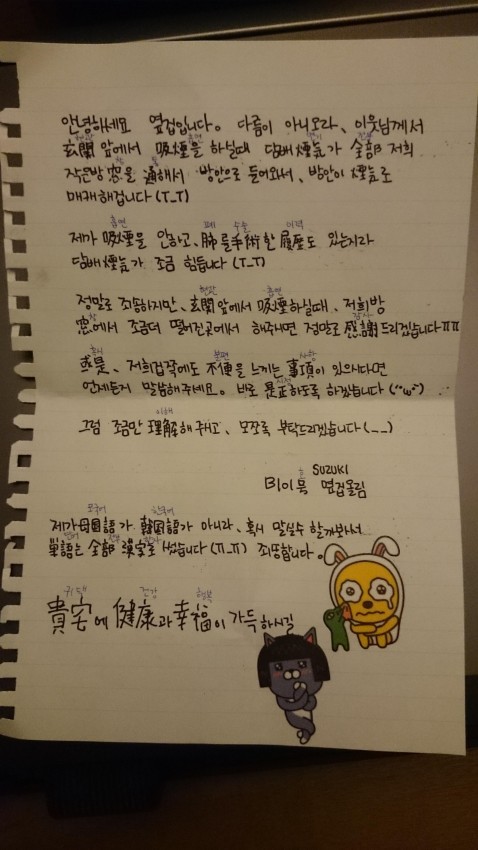 안녕하세요 옆집입니다。다름이 아니오라、이웃님께서
玄關 앞에서 吸煙을 하실때 담배煙氣가 全部 저희
작은방 窓을 通해서 방안으로 들어와서、방안이 煙氣로
매캐해집니다 (T_T)
제가 吸煙을 안하고、肺를 手術한 履歷도 있는지라
담배煙氣가 조금 힘듭니다 (T_T)
정말로 죄송하지만、玄關 앞에서 吸煙하실때、저희방
窓에서 조금더 떨어진곳에서 해주시면 정말로 感謝드리겠습니다 ㅠㅠ
或是、저희집쪽에도 不便을 느끼는 事項이 있으시다면
언제든지 말씀해주세요。바로 是正하도록 하겠습니다 (^ω^)
그럼 조금만 理解해주시고、모쪼록 부탁드리겠습니다 (_ _)
SUZUKI
옆집올림
제가 母国語가 韓国語가 아니라、혹시 말실수 할까봐서
単語는 全部 漢字로 썼습니다 (π_π) 죄송합니다。
貴宅에 健康과 幸福이 가득하시길